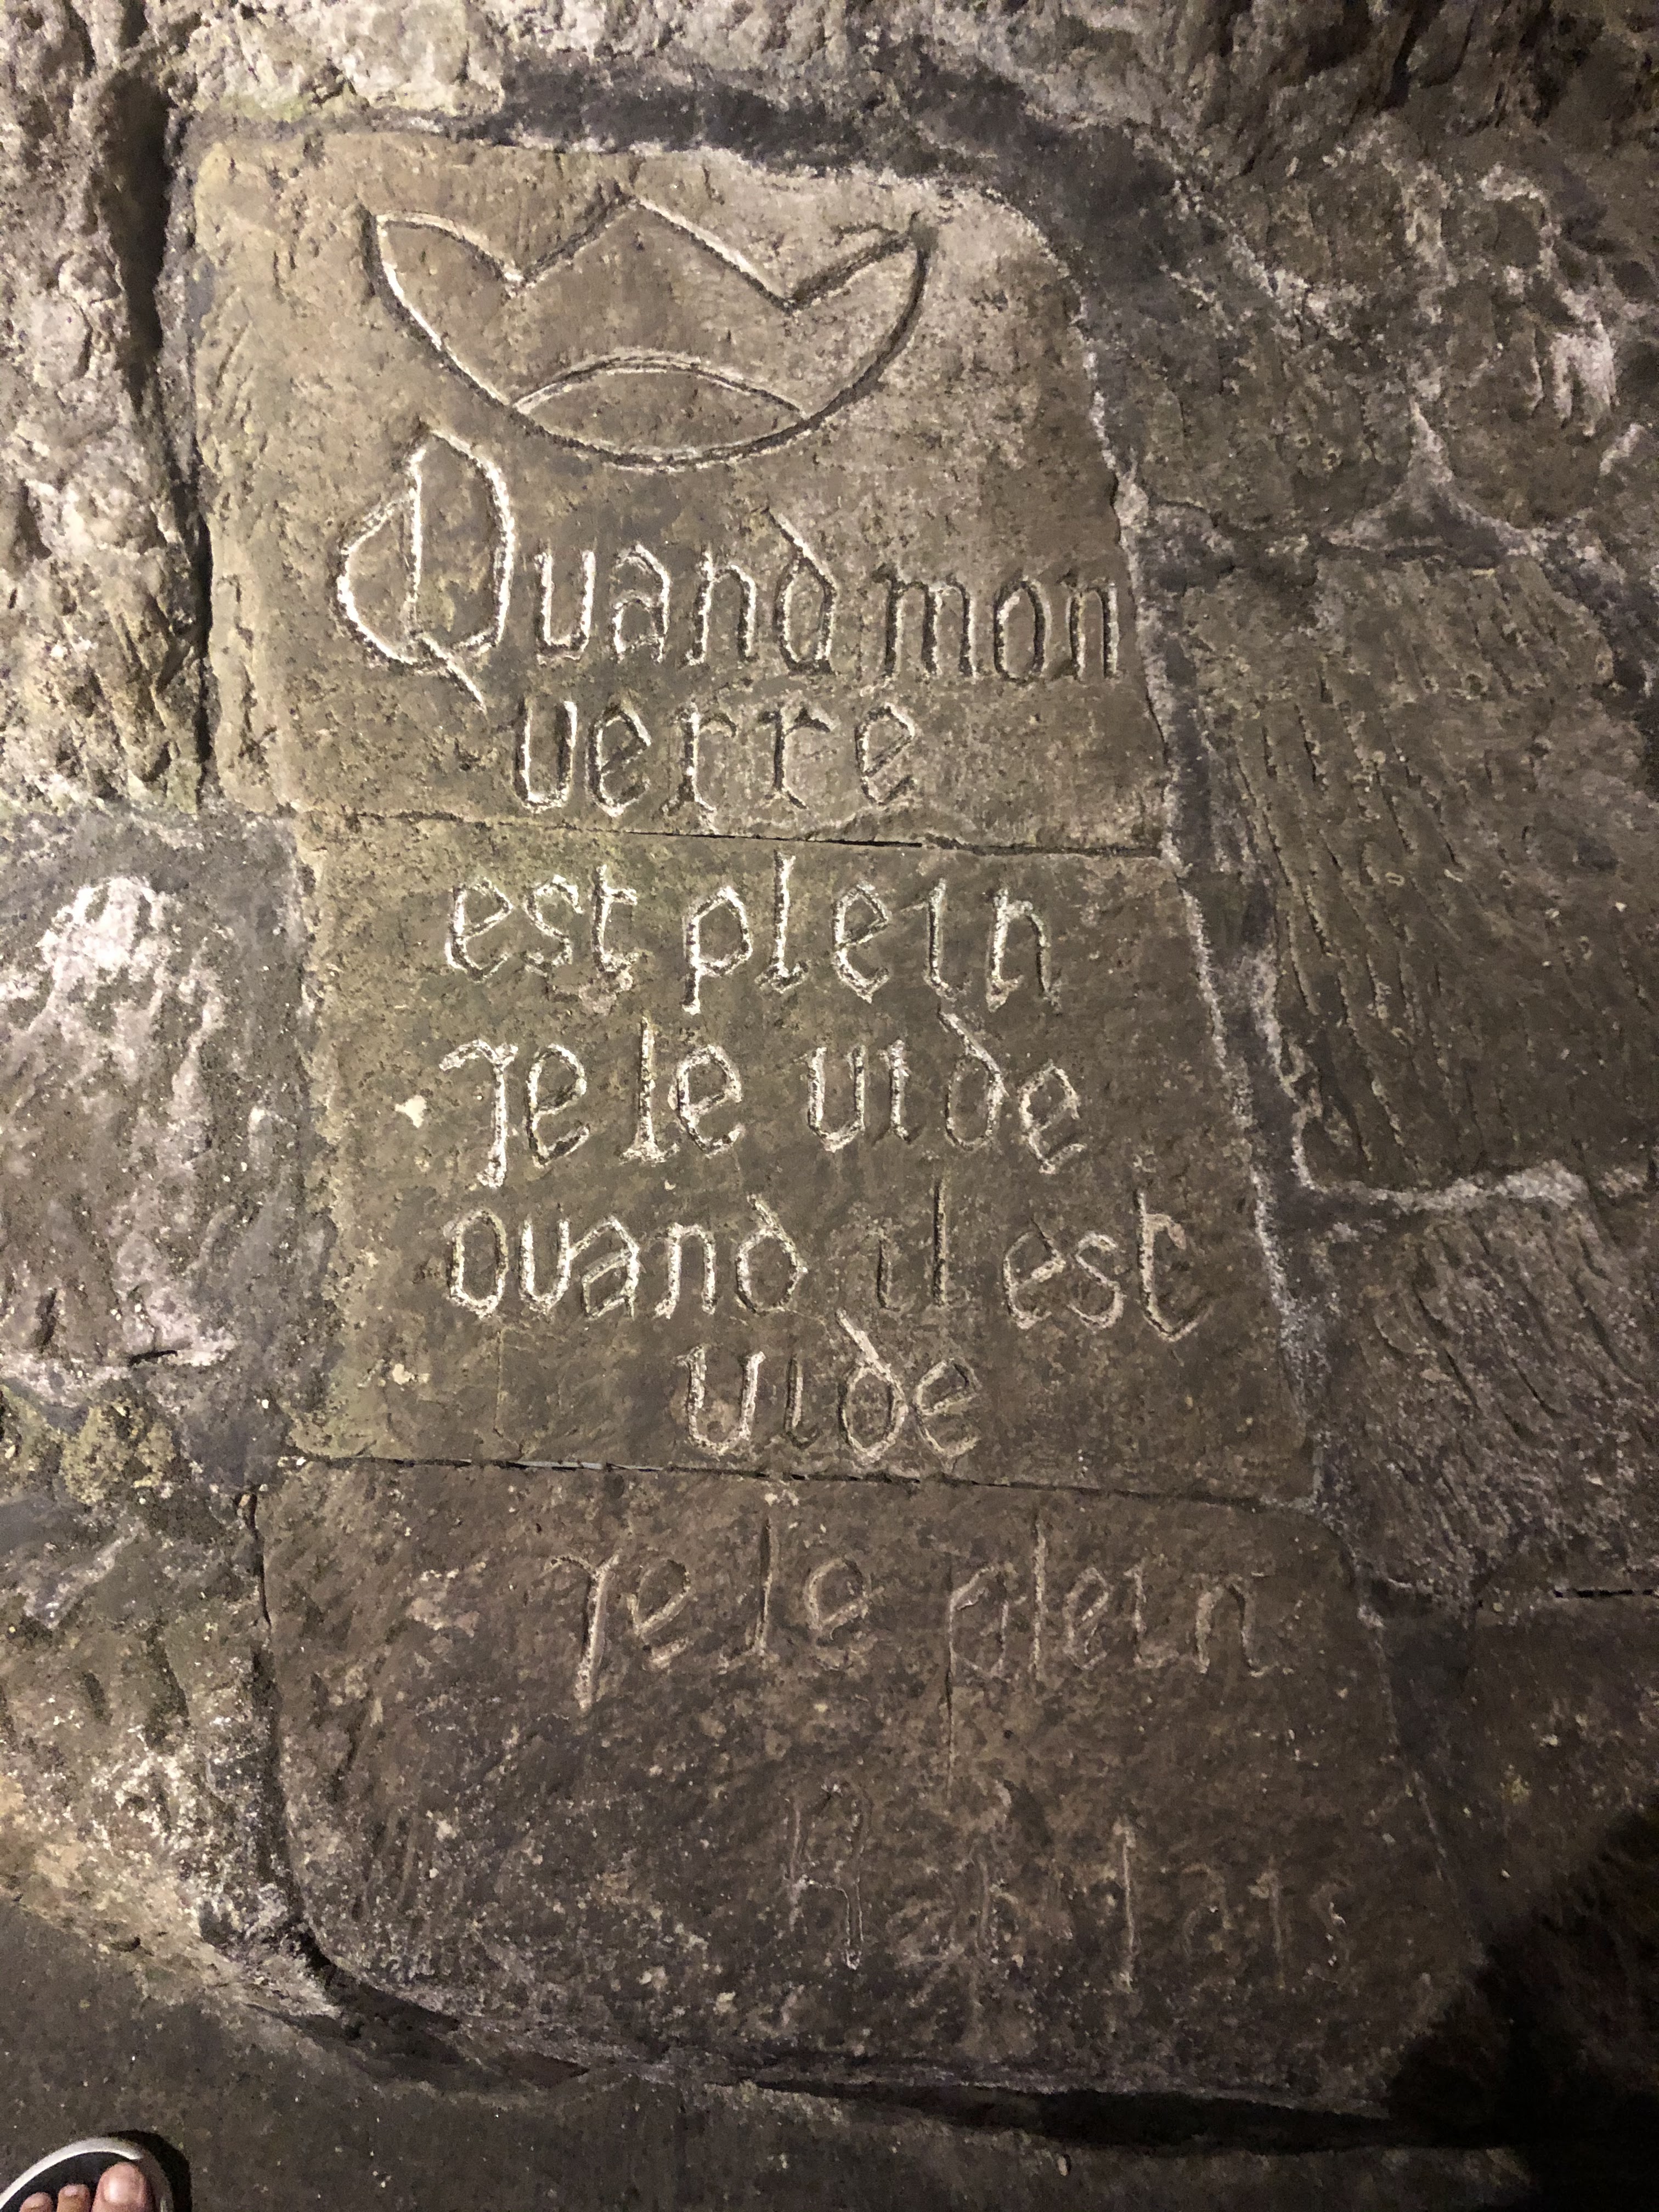 Quand mon
verre
est plein
Je le vide
Quand il est
vide
Je le plein
Rablais